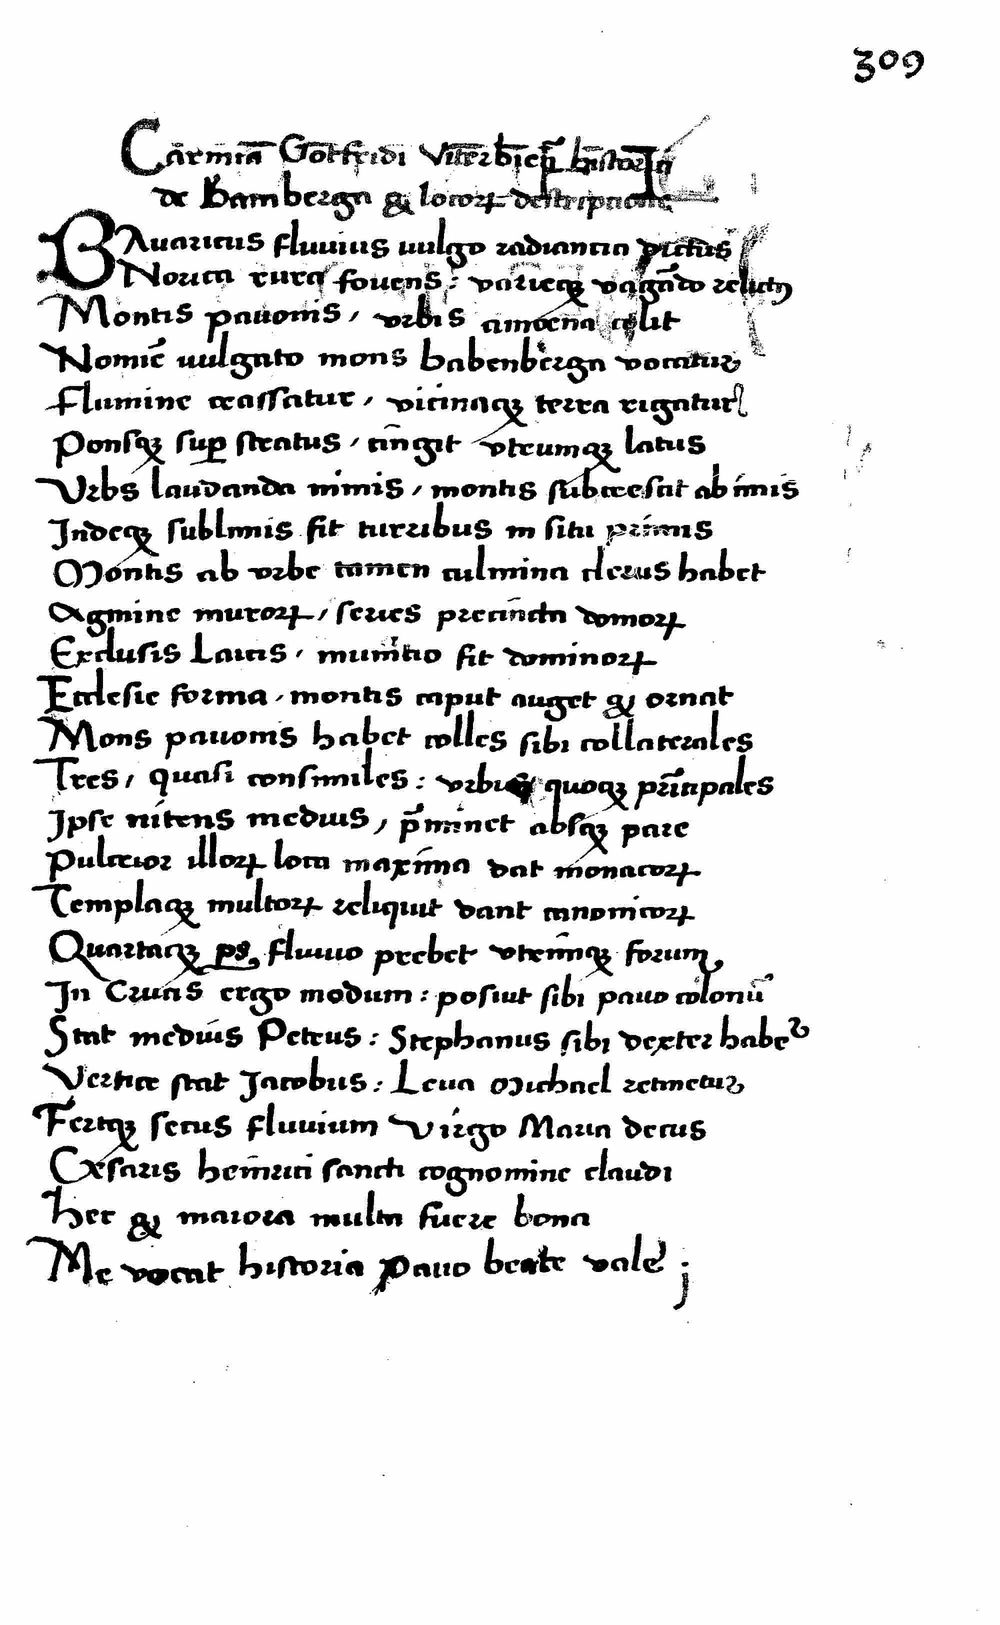 309
Carmīa Gotfridi Viterbiēs historici
de Bamberga & locorꝝ descriptione
BAvaricus fluvius uulgo radiantia pictus
Norica rura fovens: varieqꝫ vagādo relictꝰ
Montis pavonis, vrbis amoena colit
Nomiē uulgato mons babenberga vocatur
Flumine crassatur, vicinaqꝫ terra rigatur
Ponsqꝫ suꝑ stratus, cīngit vtrumqꝫ latus
Vrbs laudanda nimis, montis subcrescit ab imis
Indeqꝫ sublimis fit turribus in situ primis
Montis ab vrbe tamen culmina clerus habet
Agmine murorꝝ, series precincta domorꝝ
Exclusis Laicis, munitio fit dominorꝝ
Ecclesie forma, montis caput auget & ornat
Mons pavonis habet colles sibi collaterales
Tres, quasi consimiles: vrbis quoqꝫ prīcipales
Ipse nitens medius, p̄minet absqꝫ pare
Pulcrior illorꝝ loca maxīma dat monacorꝝ
Templaqꝫ multorꝝ reliquit dant canonicorꝝ
Quartaqꝫ ps fluvio prebet vtrinqꝫ forum
In Crucis ergo modum: posiut sibi pavo colonū
Stat medius Petrus: Stephanus sibi dexter habeᵗ
Vertice stat Jacobus: Leva Michael retinetur
Fertqꝫ secus fluvium Virgo Maria decus
Cęsaris heinrici sancti cognomine claudi
Hec & maiora multa fuere bona
Me vocat historia pavo beate vale ;